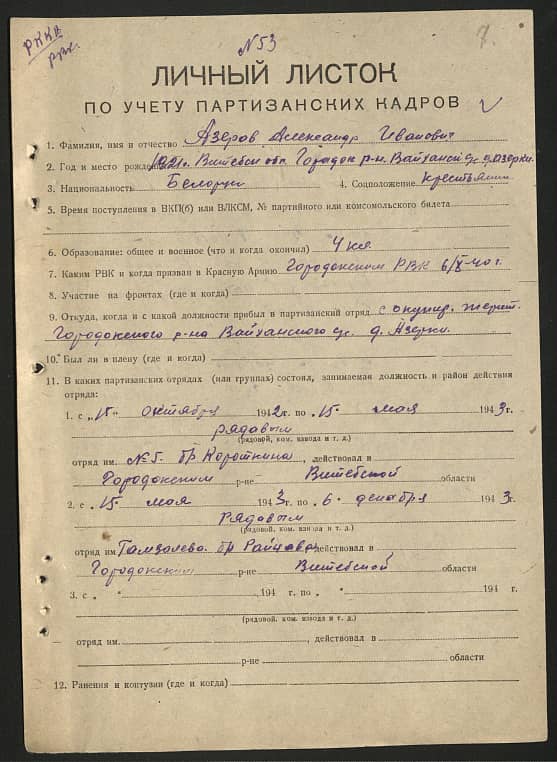 РККА
РВК.
N53
7.
ЛИЧНЫЙ ЛИСТОК
ПО УЧЕТУ ПАРТИЗАНСКИХ КАДРОВ
1. Фамилия, имя и отчество Азеров Александр Иванович
2. Год и место рождения 1921г. Витебск обл. Городок р-н. Вайханск с/с д. Азерки.
3. Национальность Белорус 4. Соцположение крестьянин
5. Время поступления в ВКП(б) или ВЛКСМ, № партийного или комсомольского билета
6. Образование: общее и военное (что и когда окончил) 4 кл.
7. Каким РВК и когда призван в Красную Армию Городокским РВК 6/X-40 г.
8. Участие на фронтах (где и когда)
9. Откуда, когда и с какой должности прибыл в партизанский отряд с окупир. терит.
Городокского р-на Вайханского с/с. д. Азерки.
10. Был ли в плену (где и когда)
11. В каких партизанских отрядах (или группах) состоял, занимаемая должность и район действия
отряда:
1. с „15" октября 1942 г. по „15. мая 1943 г.
рядовым
(рядовой, ком. взвода и т. д.)
отряд им. №5. бр Короткина, действовал в
Городокским р-не Витебской области
2. с „15. мая 1943 г. по „6. декабря 1943 г.
Рядовым
(рядовой, ком. взвода и т. д.)
отряд им бр Райцева действовал в
Городокским р-не Витебской области
3. с „ " 194 г. по „ " 194 г.
(рядовой, ком. взвода и т. д.)
отряд им. , действовал в
р-не области
12. Ранения и контузии (где и когда)